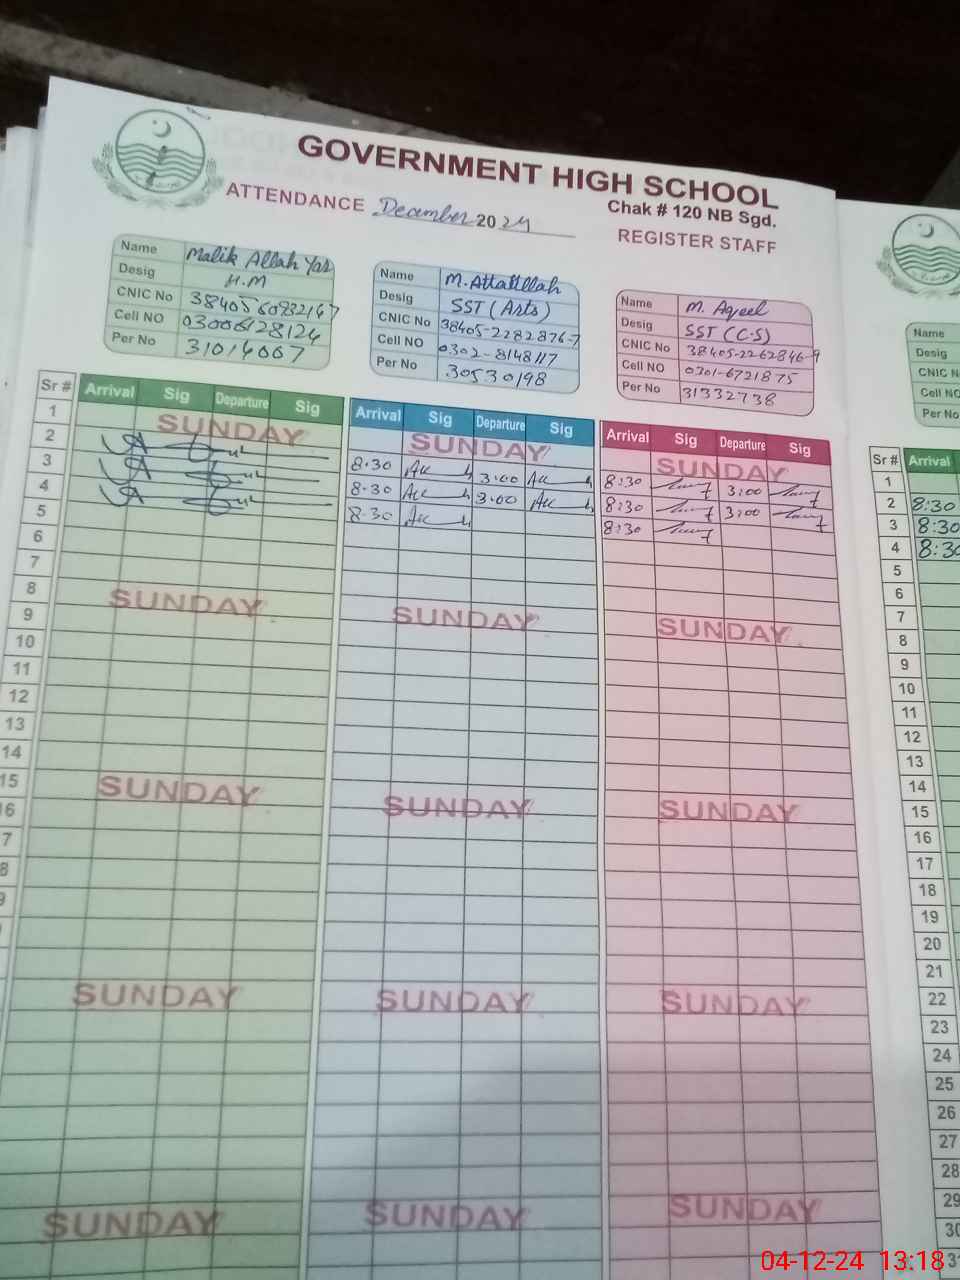 GOVERNMENT HIGH SCHOOL
Chak # 120 NB Sgd.
ATTENDANCE December 2024
REGISTER STAFF
Name Malik Allah Yar
Desig H.M
CNIC No
Cell NO 03006128124
Per No 31014007
Name M. Attaullah
Desig SST (Arts)
CNIC No 38405-2282876-7
Cell NO 0302-8148117
Per No 30530198
Name M. Aqeel
Desig SST (C.S)
CNIC No 38405-2262846-9
Cell NO 0301-6721875
Per No 31332738
Name
Desig
CNIC N
Cell NO
Per No
Sr # Arrival Sig Departure Sig
Arrival Sig Departure Sig
Arrival Sig Departure Sig
Sr # Arrival
1 SUNDAY SUNDAY SUNDAY 1
2 8.30 3:00 8:30 3:00 2 8:30
3 8.30 3.00 8:30 3:00 3 8:30
4 8.30 8:30 4 8:30
5 5
6 6
7 7
8 SUNDAY SUNDAY SUNDAY 8
9 9
10 10
11 11
12 12
13 13
14 14
15 SUNDAY SUNDAY SUNDAY 15
16 16
7 17
8 18
9 19
20
21
SUNDAY SUNDAY SUNDAY 22
23
24
25
26
27
28
SUNDAY SUNDAY SUNDAY 29
30
31
04-12-24 13:18